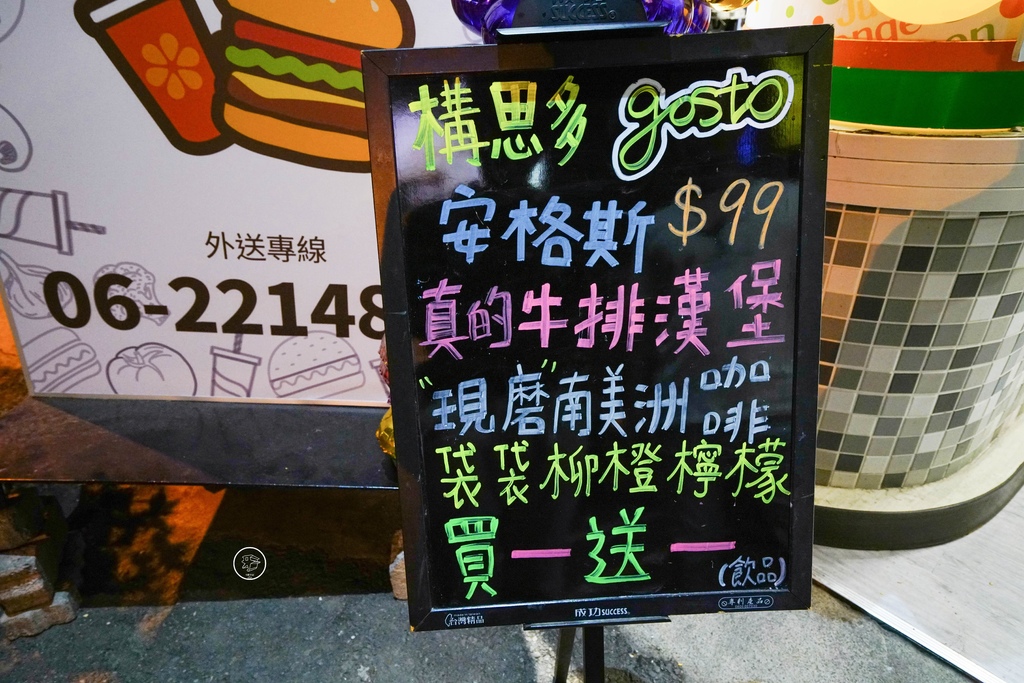 構思多 gosto
安格斯 $99
真的牛排漢堡
"現磨"南美洲咖啡
袋袋柳橙檸檬
買一送一
(飲品)
成功 SUCCESS
台灣精品
專利產品
外送專線
06-22148